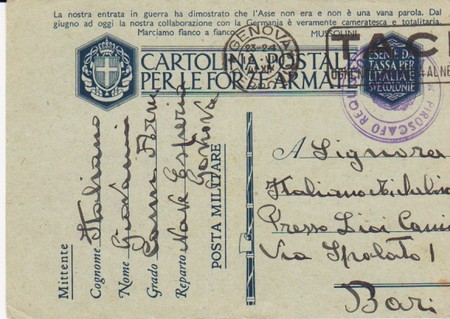 La nostra entrata in guerra ha dimostrato che l'Asse non era e non è una vana parola. Dal
giugno ad oggi la nostra collaborazione con la Germania è veramente cameratesca e totalitaria.
Marciamo fianco a fianco. MUSSOLINI
GENOVA
23-24
TACI
CARTOLINA POSTALE
PER LE FORZE ARMATE
ESENTE DA
TASSA PER
L'ITALIA E
SUE COLONIE
PIROSCAFO REQUI
Mittente
Cognome Italiano
Nome Giovanni
Grado
Reparto Nave Esperia
Genova
POSTA MILITARE
A Signora
Italiano
Presso
Via Spalato 1
Bari